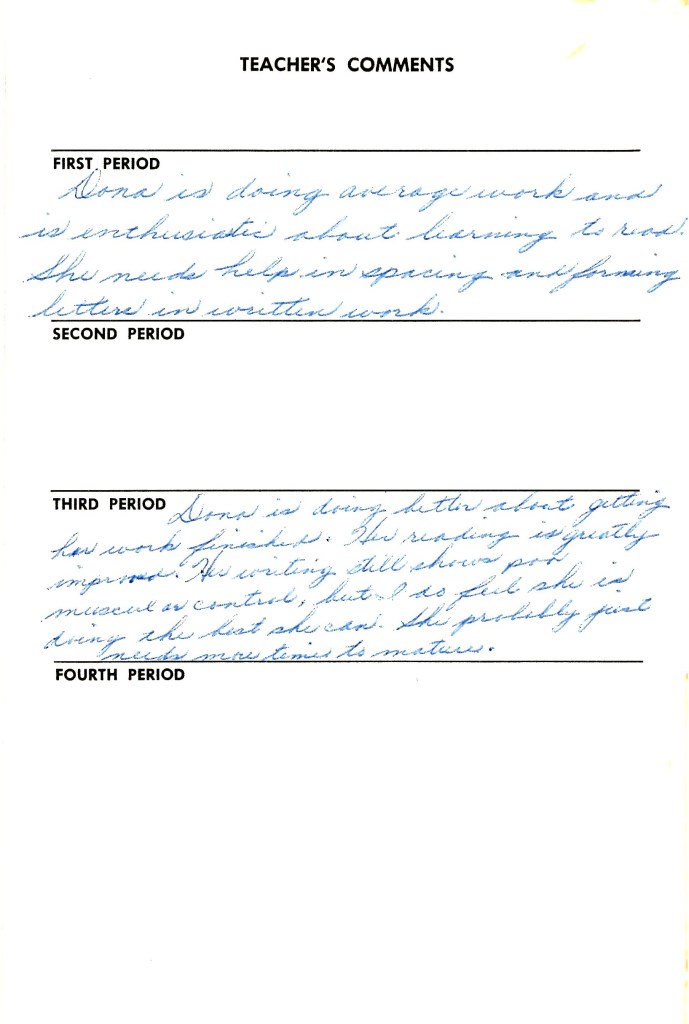 TEACHER'S COMMENTS
FIRST PERIOD
Dona is doing average work and
is enthusiastic about learning to read.
She needs help in spacing and forming
letters in written work.
SECOND PERIOD
THIRD PERIOD Dona is doing better about getting
her work finished. Her reading is greatly
improved. Her writing still shows poor
muscular control, but I do feel she is
doing the best she can. She probably just
needs more time to mature.
FOURTH PERIOD